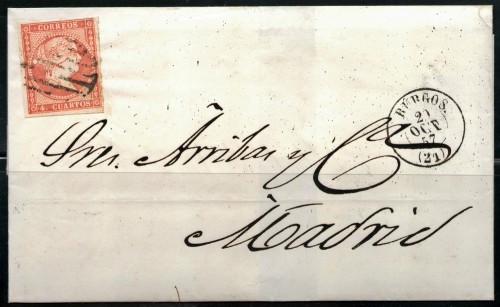 CORREOS
4 CUARTOS
BURGOS.
20
OCT
57
(21)
Sres. Arribas y Cª
Madrid